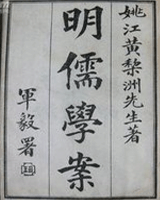 姚江黃棃洲先生著
明儒學案
軍毅署